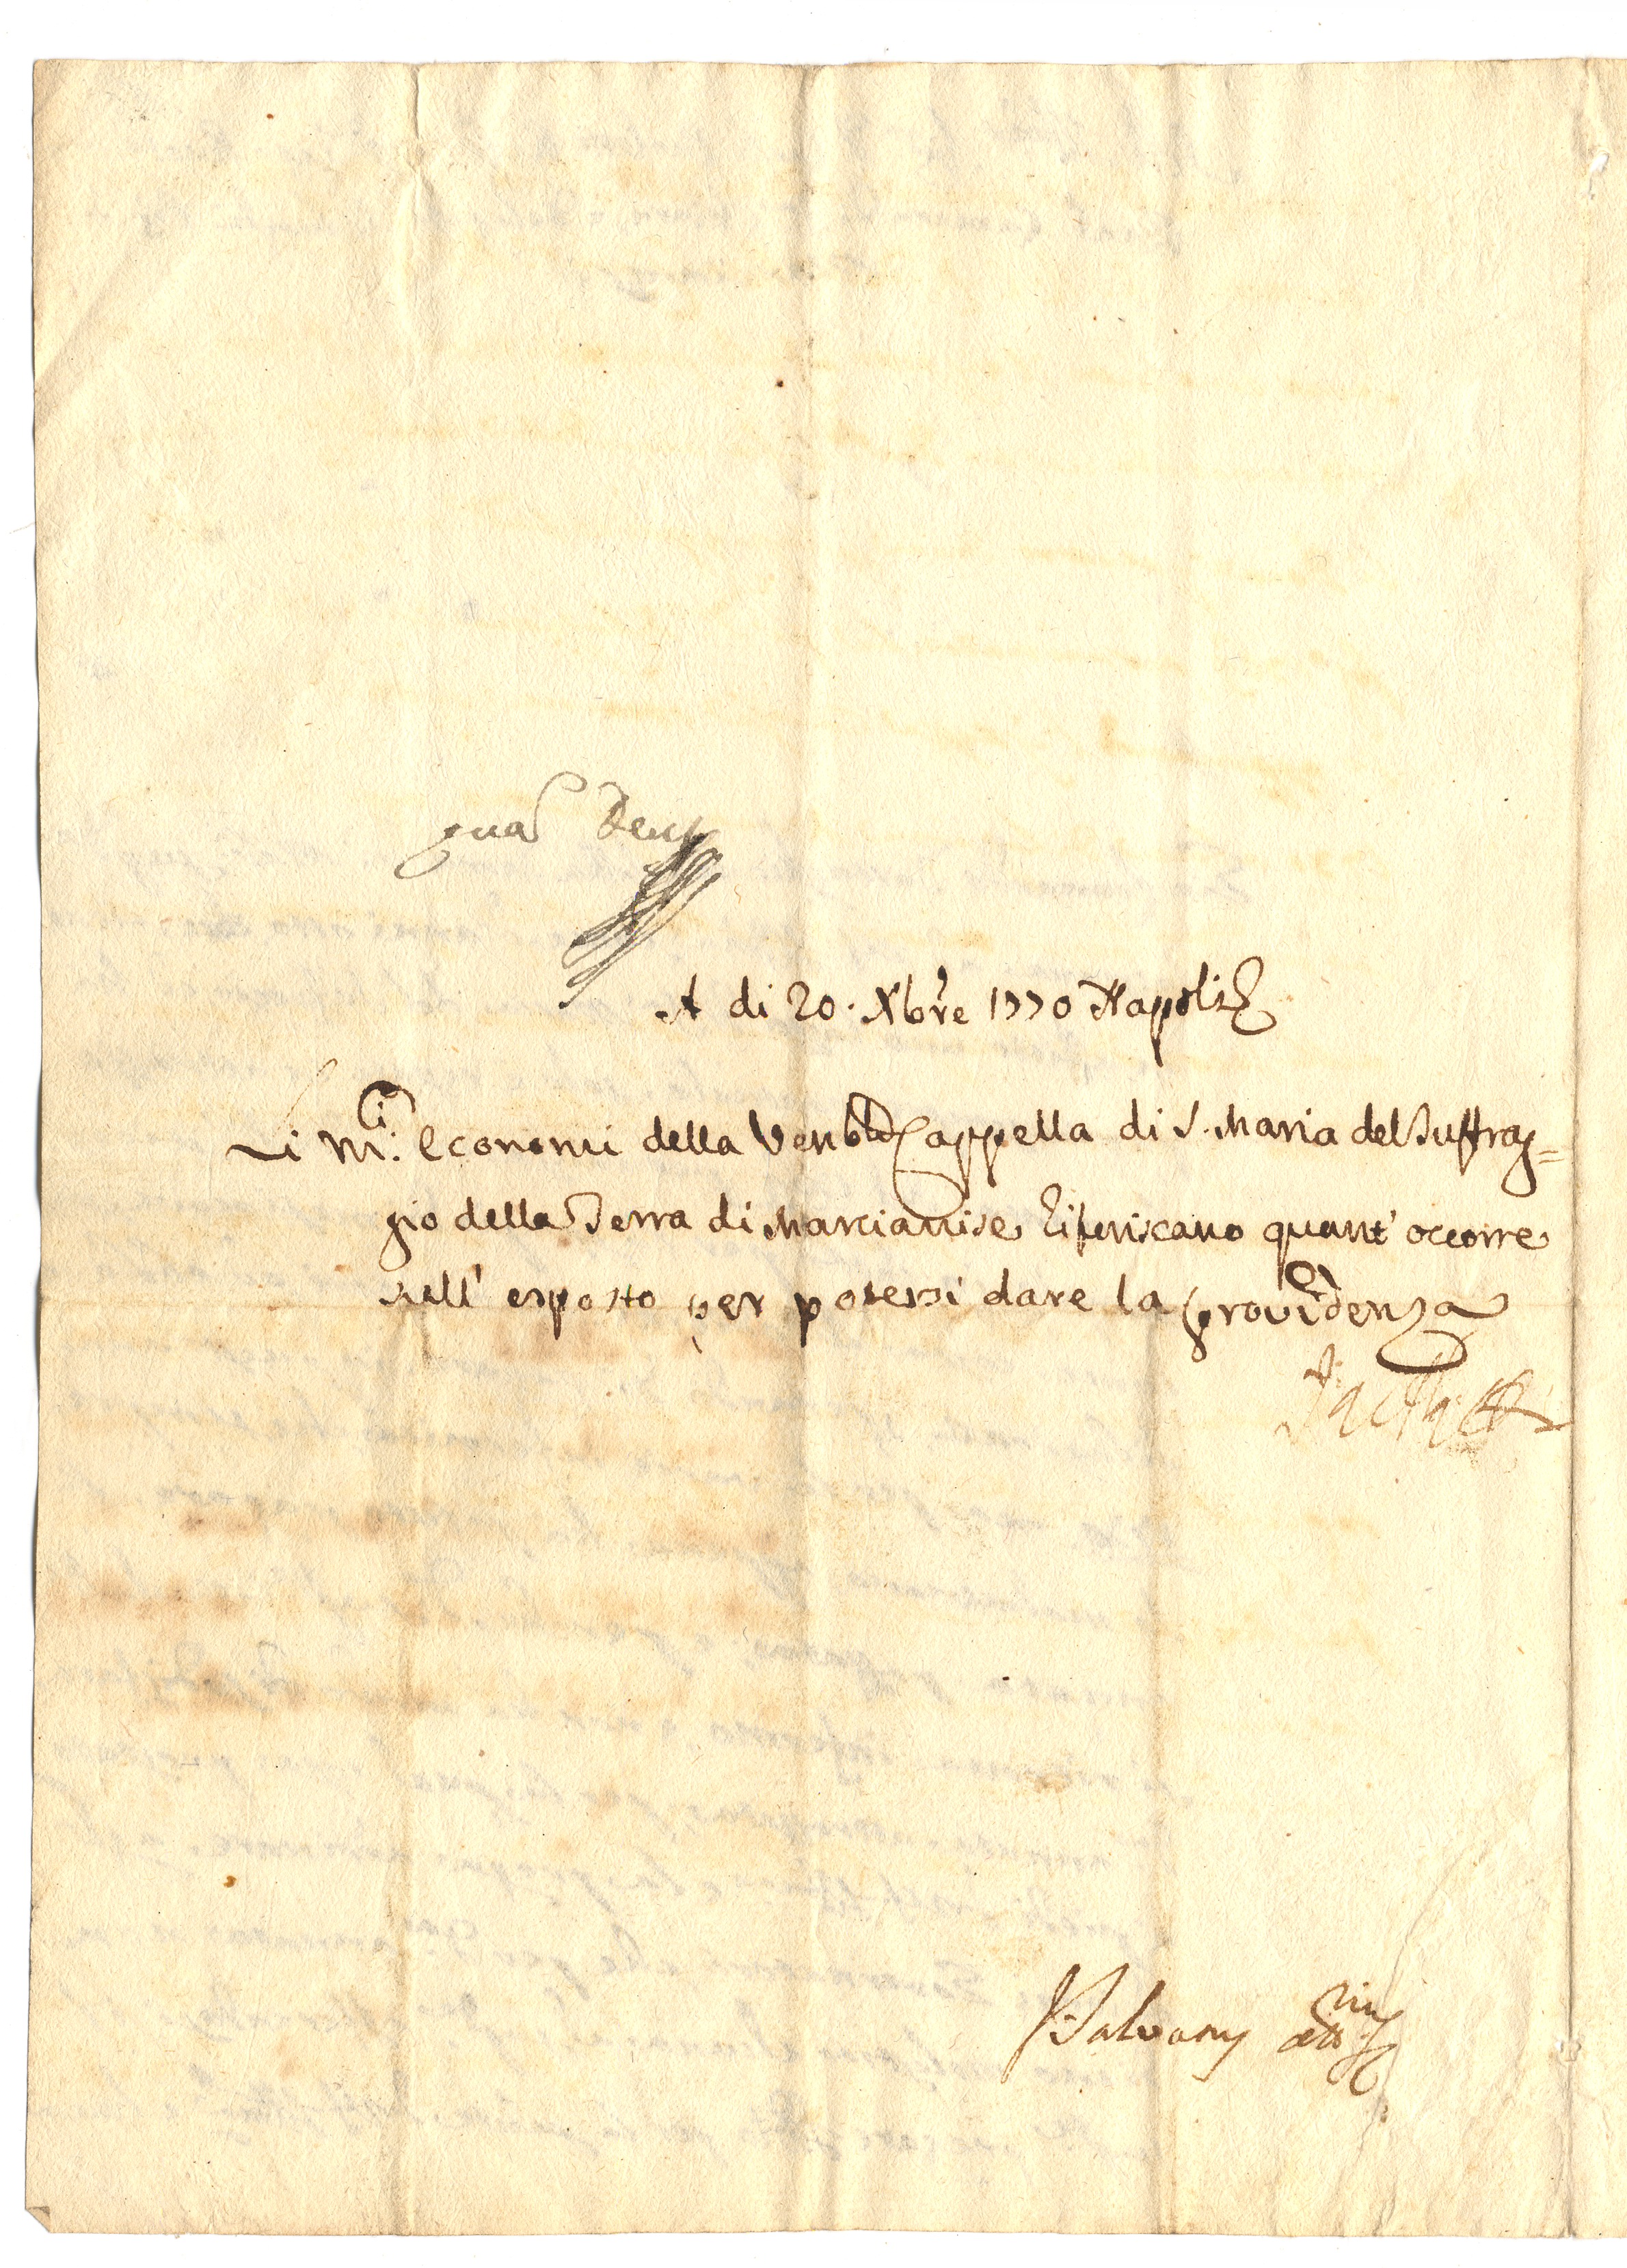 A di 20. Xbre 1770 Napoli
Li M.ci Economi della Venble Cappella di S. Maria del Suffrag=
gio della Terra di Marcianise riferiscano quant' occorre
sull' esposto per potersi dare la providenza